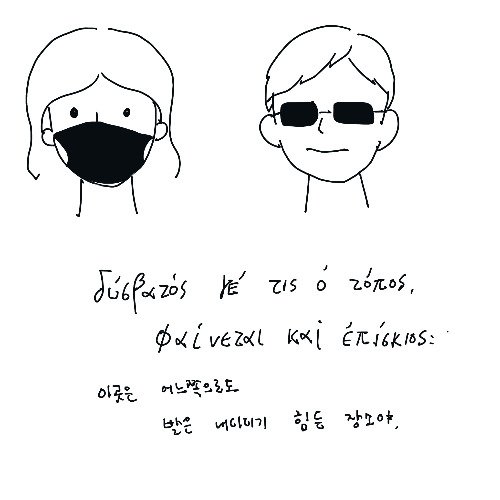 δύσβατός γέ τις ό τόπος,
φαίνεται καί έπίσκιος:
이곳은 어느쪽으로도
발은 내디디기 힘든 장소야.